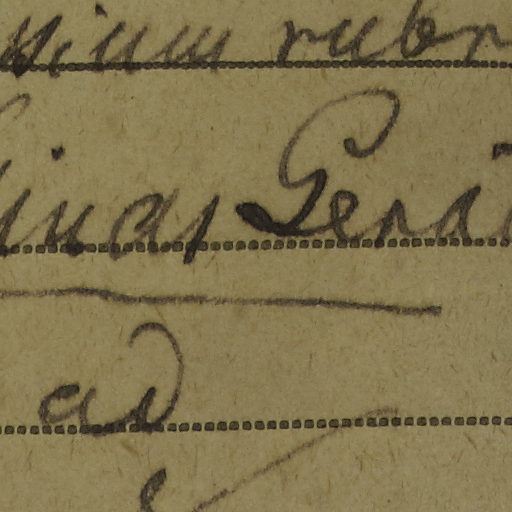 nium rubr
inas Gerä
ad